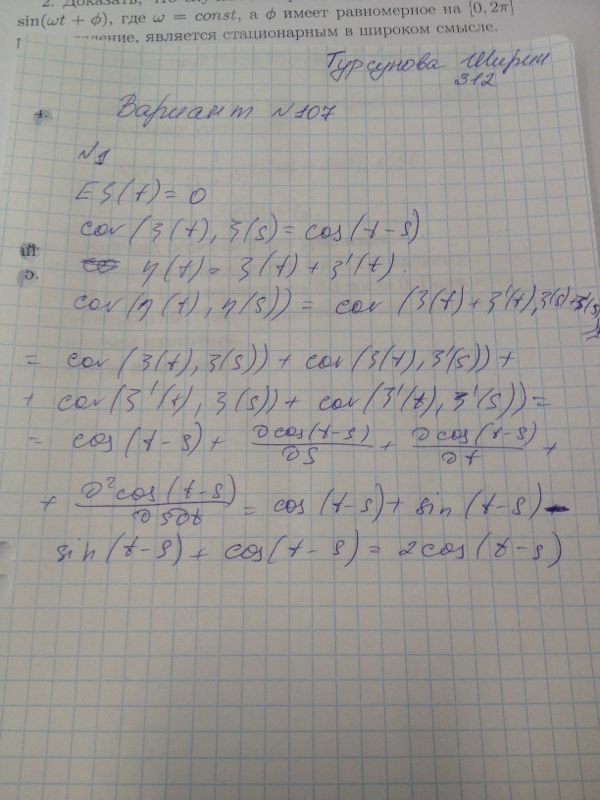 2. Доказать, что
sin(ωt + ϕ), где ω = const, а ϕ имеет равномерное на [0, 2π]
является стационарным в широком смысле.
Турсунова Ширин
312
4.
Вариант №107
№1
Eξ(t) = 0
cov(ξ(t), ξ(s) = cos(t-s)
ай
э.
η(t) = ξ(t) + ξ'(t).
cov(η(t), η(s)) = cov(ξ(t)+ξ'(t), ξ(s)+ξ'(s))
= cov(ξ(t), ξ(s)) + cov(ξ(t), ξ'(s)) +
+ cov(ξ'(t), ξ(s)) + cov(ξ'(t), ξ'(s)) =
= cos(t-s) + ∂cos(t-s)/∂s + ∂cos(t-s)/∂t +
+ ∂²cos(t-s)/∂s∂t = cos(t-s) + sin(t-s) -
sin(t-s) + cos(t-s) = 2cos(t-s)